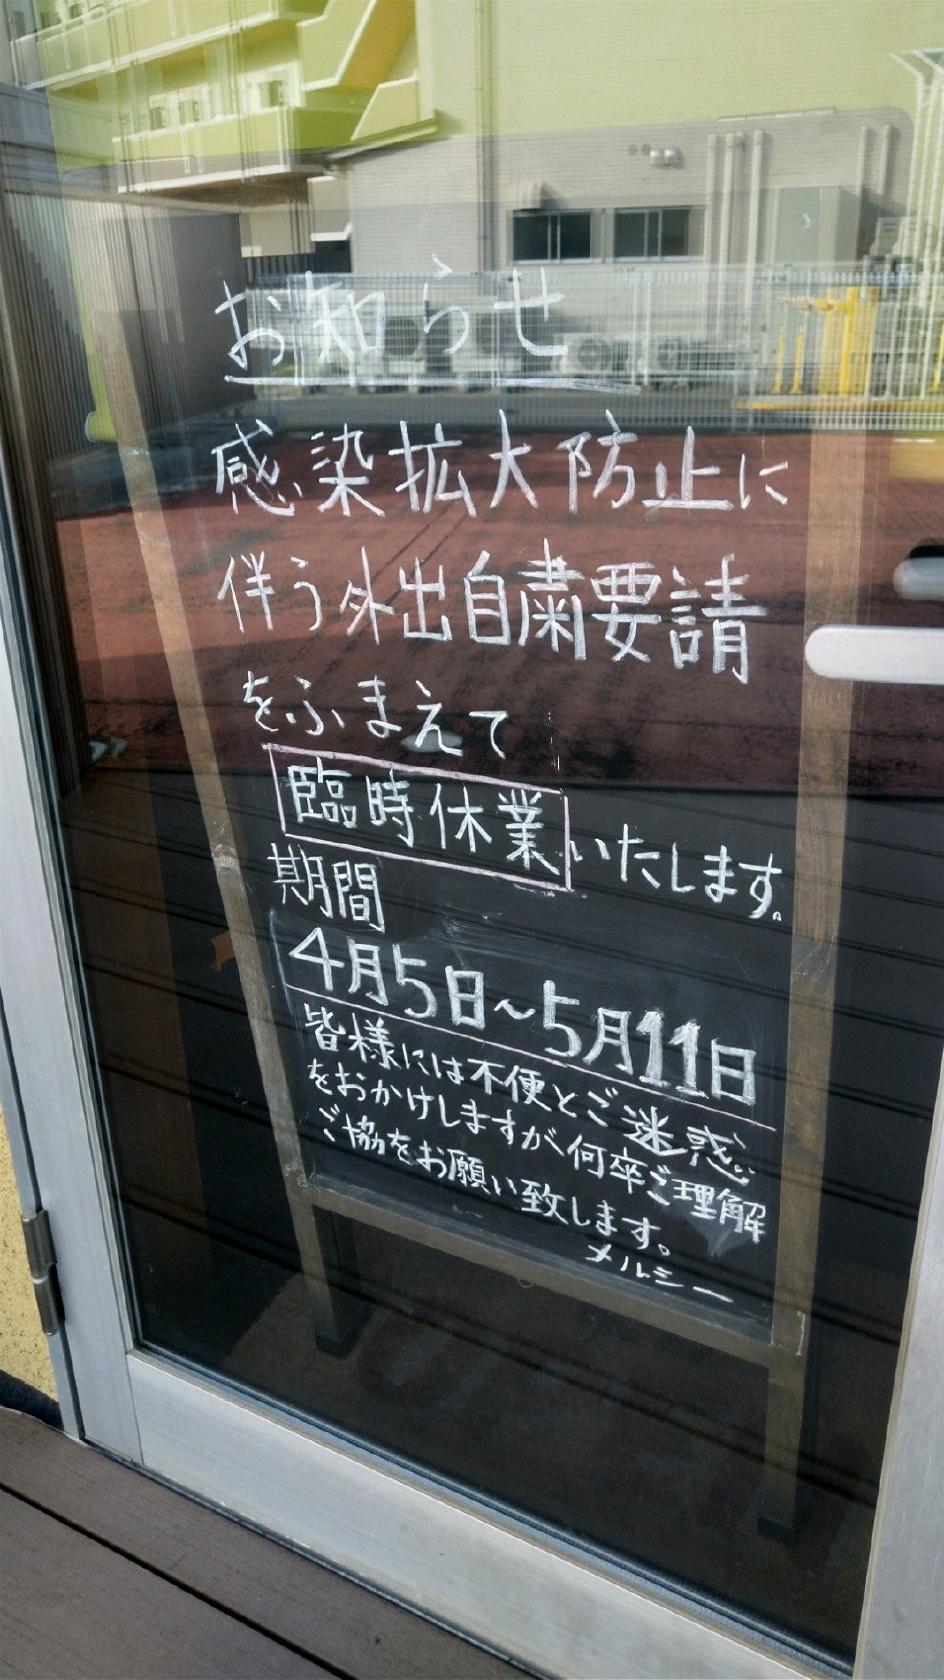 お知らせ
感染拡大防止に
伴う外出自粛要請
をふまえて
臨時休業いたします。
期間
4月5日～5月11日
皆様には不便とご迷惑
をおかけしますが何卒ご理解
ご協をお願い致します。
メルシー